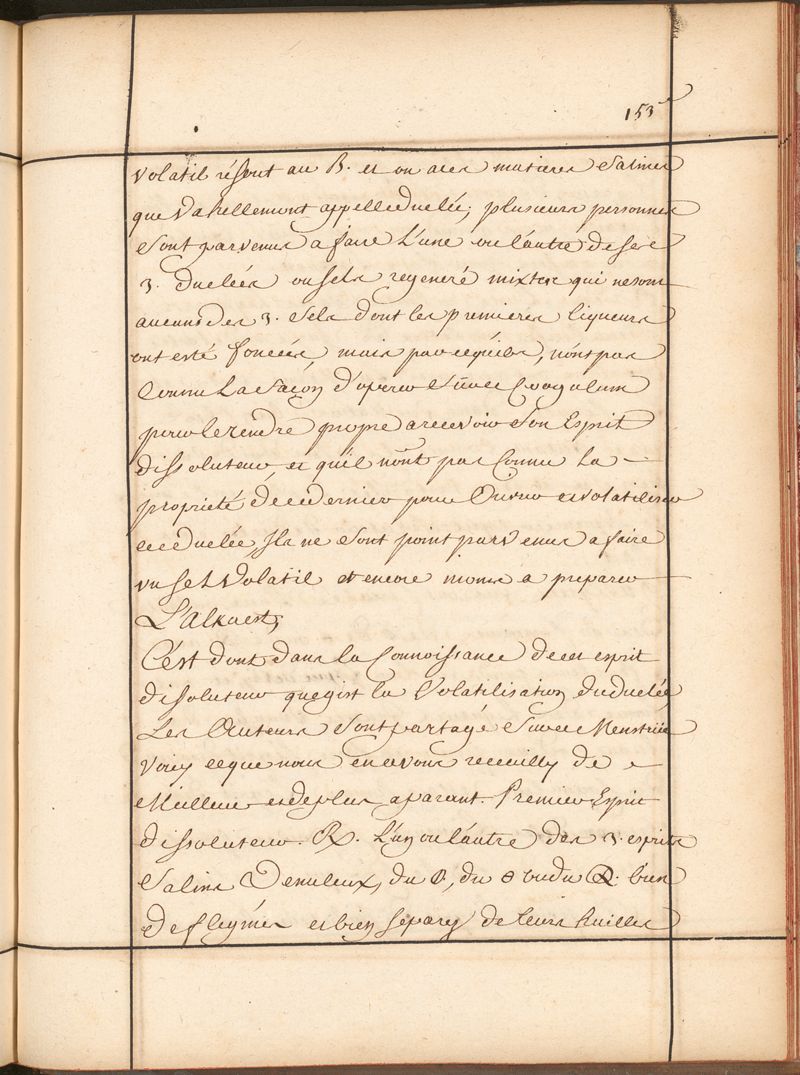 153
volatil résout au B. et on a ces matieres salines
que Vanhellemont appelle duelée; plusieurs personnes
sont parvenus a faire L'une ou l'autre de ses
3. duelées ou sels regeneré mixtes qui ne sont
aucuns des 3. sels dont les premieres liqueurs
ont esté foncées, mais parcequ'ils, n'ont pas
connu La façon d'operer sur ce Coagulum
pour le rendre propre a recevoir son Esprit
dissoluteur, et qu'il n'ont pas Connu la
proprieté de ce dernier pour Ouvrir et volatiliser
ce duelée, Ils ne sont point parvenus a faire
un sel volatil et encore moins a preparer
L'Alkaest,
C'est dont dans la Connoissance de cet esprit
dissoluteur que gist la Volatilisation du duelée,
Les Auteurs sont partagé sur ce Menstrüe
Voicy ce que nous en avons receuilly de
Meilleur et de plus aparant. Premier Esprit
dissoluteur. R. L'un ou l'autre des 3. esprits
salins Venuleux, du , du ou du bien
deflegmés et bien separés de leurs huilles